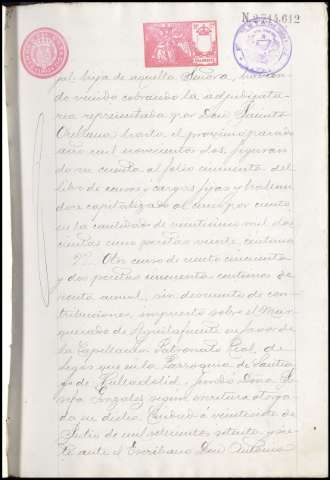 N.2.714.612
gel hija de aquella Señora, habien
do venido cobrando la adjudicata
ria representada por Don Jacinto
Orellana, hasta el próximo pasado
año mil novecientos dos, figuran
do su cuenta al folio cincuenta del
libro de censos y cargas fijas y hallan
dose capitalizado al cinco por ciento
en la cantidad de veintiun mil dos
cientas pesetas veinte centimos
22. Otro censo de ciento cincuenta
y dos pesetas cincuenta centimos de
renta anual, sin descuento de con
tribuciones, impuesto sobre el Mar
quesado de Aguilafuente en favor de
la Capellania Patronato Real, de
legos que en la Parroquia de Santia
go de Valladolid, fundó Dona
Gonzalez segun escritura otorga
da en dicha Ciudad á veintisiete de
Julio de mil seiscientos setenta y sie
te ante el Escribano Don Antonio